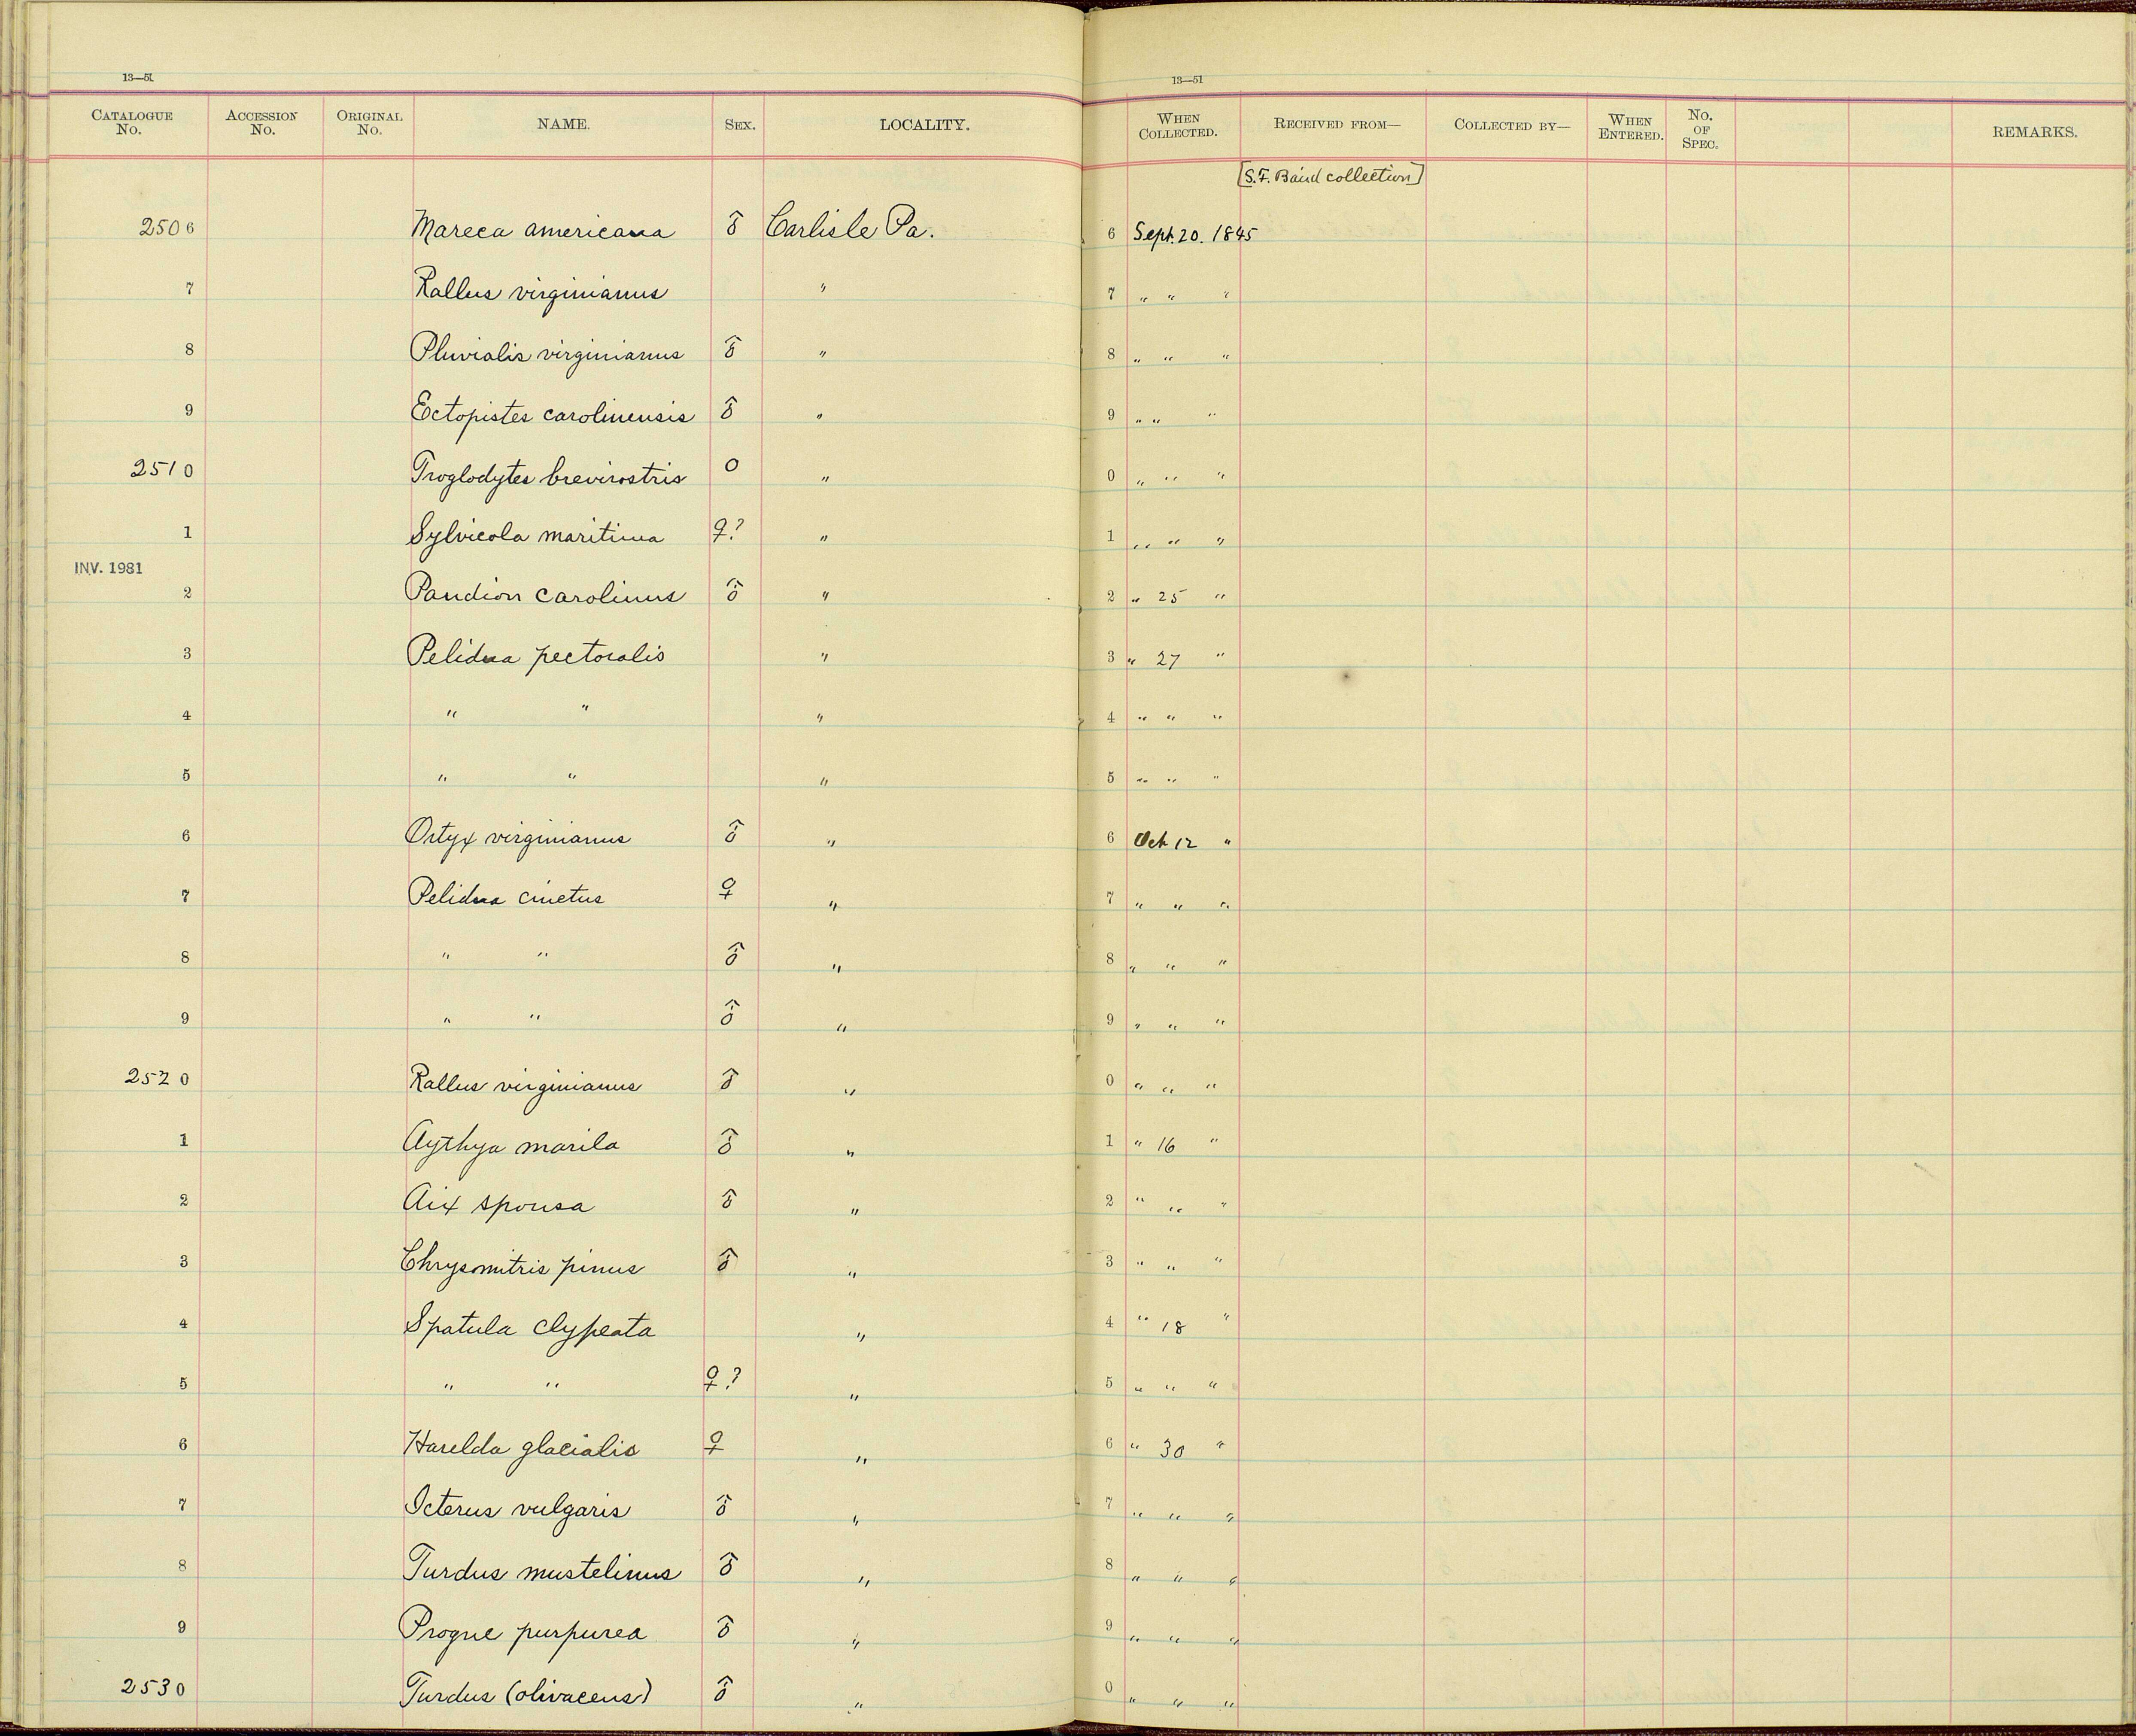 13—51
13—51
CATALOGUE No. ACCESSION No. ORIGINAL No. NAME. SEX. LOCALITY. WHEN COLLECTED. RECEIVED FROM— COLLECTED BY— WHEN ENTERED. No. OF SPEC. REMARKS.
[S.F. Baird collection]
2506 Mareca americana ♂ Carlisle Pa. 6 Sept. 20. 1845
7 Rallus virginianus " 7 " " "
8 Pluvialis virginianus ♂ " 8 " " "
9 Ectopistes carolinensis ♂ " 9 " " "
2510 Troglodytes brevirostris O " 0 " " "
1 Sylvicola maritima ♀? " 1 " " "
INV. 1981
2 Pandion carolinus ♂ " 2 " 25 "
3 Pelidna pectoralis " 3 " 27 "
4 " " " 4 " " "
5 " " " 5 " " "
6 Ortyx virginianus ♂ " 6 Oct 12 "
7 Pelidna cinctus ♀ " 7 " " "
8 " " ♂ " 8 " " "
9 " " ♂ " 9 " " "
2520 Rallus virginianus ♂ " 0 " " "
1 Aythya marila ♂ " 1 " 16 "
2 Aix sponsa ♂ " 2 " " "
3 Chrysomitris pinus ♂ " 3 " " "
4 Spatula clypeata " 4 " 18 "
5 " " ♀? " 5 " " "
6 Harelda glacialis ♀ " 6 " 30 "
7 Icterus vulgaris ♂ " 7 " " "
8 Turdus mustelinus ♂ " 8 " " "
9 Progne purpurea ♂ " 9 " " "
2530 Turdus (olivaceus) ♂ " 0 " " "